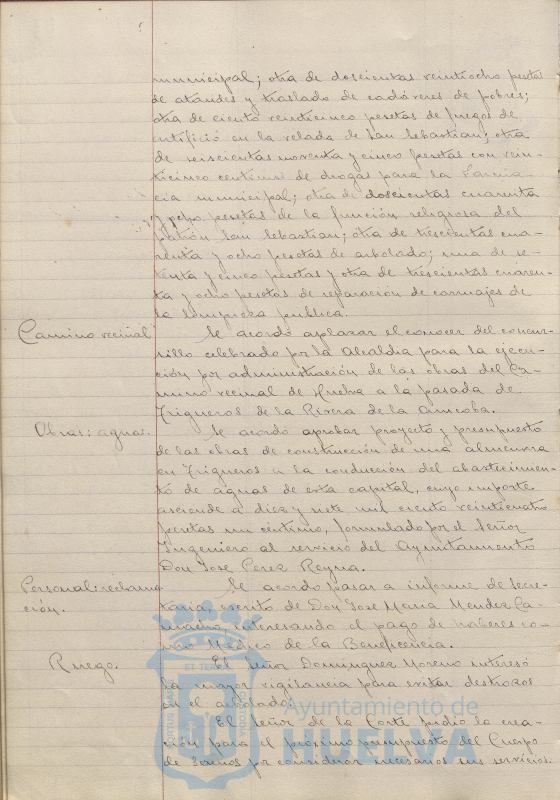 municipal; otra de doscientas veintiocho pesetas
de ataudes y traslado de cadáveres de pobres;
otra de ciento veinticinco pesetas de fuegos de
artificio en la velada de San Sebastian; otra
de seiscientas noventa y cinco pesetas con vein-
ticinco centimos de drogas para la Farma-
cia municipal; otra de doscientas cuarenta
y ocho pesetas de la función religiosa del
patrón San Sebastian; otra de trescientas cua-
renta y ocho pesetas de arbolado; una de se-
tenta y cinco pesetas y otra de trescientas cuaren-
ta y ocho pesetas de reparación de carruajes de
la limpieza publica.
Camino vecinal Se acordo aplazar el conocer del concur-
sillo celebrado por la Alcaldia para la ejecu-
ción por administración de las obras del Ca-
mino vecinal de Huelva a la pasada de
Trigueros de la Rivera de la Anicoba.
Obras: aguas. Se acordo aprobar proyecto y presupuesto
de las obras de construcción de una almenara
en Trigueros a la conducción del abastecimien-
to de aguas de esta capital, cuyo importe
asciende a diez y siete mil ciento veinticuatro
pesetas un centimo, formulado por el Señor
Ingeniero al servicio del Ayuntamiento
Don Jose Perez Reyna.
Personal: reclama-
ción. Se acordo pasar a informe de Secre-
taria, escrito de Don Jose Maria Mendez Ca-
macho, interesando el pago de haberes co-
mo Médico de la Beneficencia.
Ruego. El señor Dominguez Moreno interesó
la mayor vigilancia para evitar destrozos
en el arbolado.
El señor de la Corte pidio la crea-
ción para el proximo presupuesto del Cuerpo
de Serenos por considerar necesarios sus servicios.
Ayuntamiento de
HUELVA